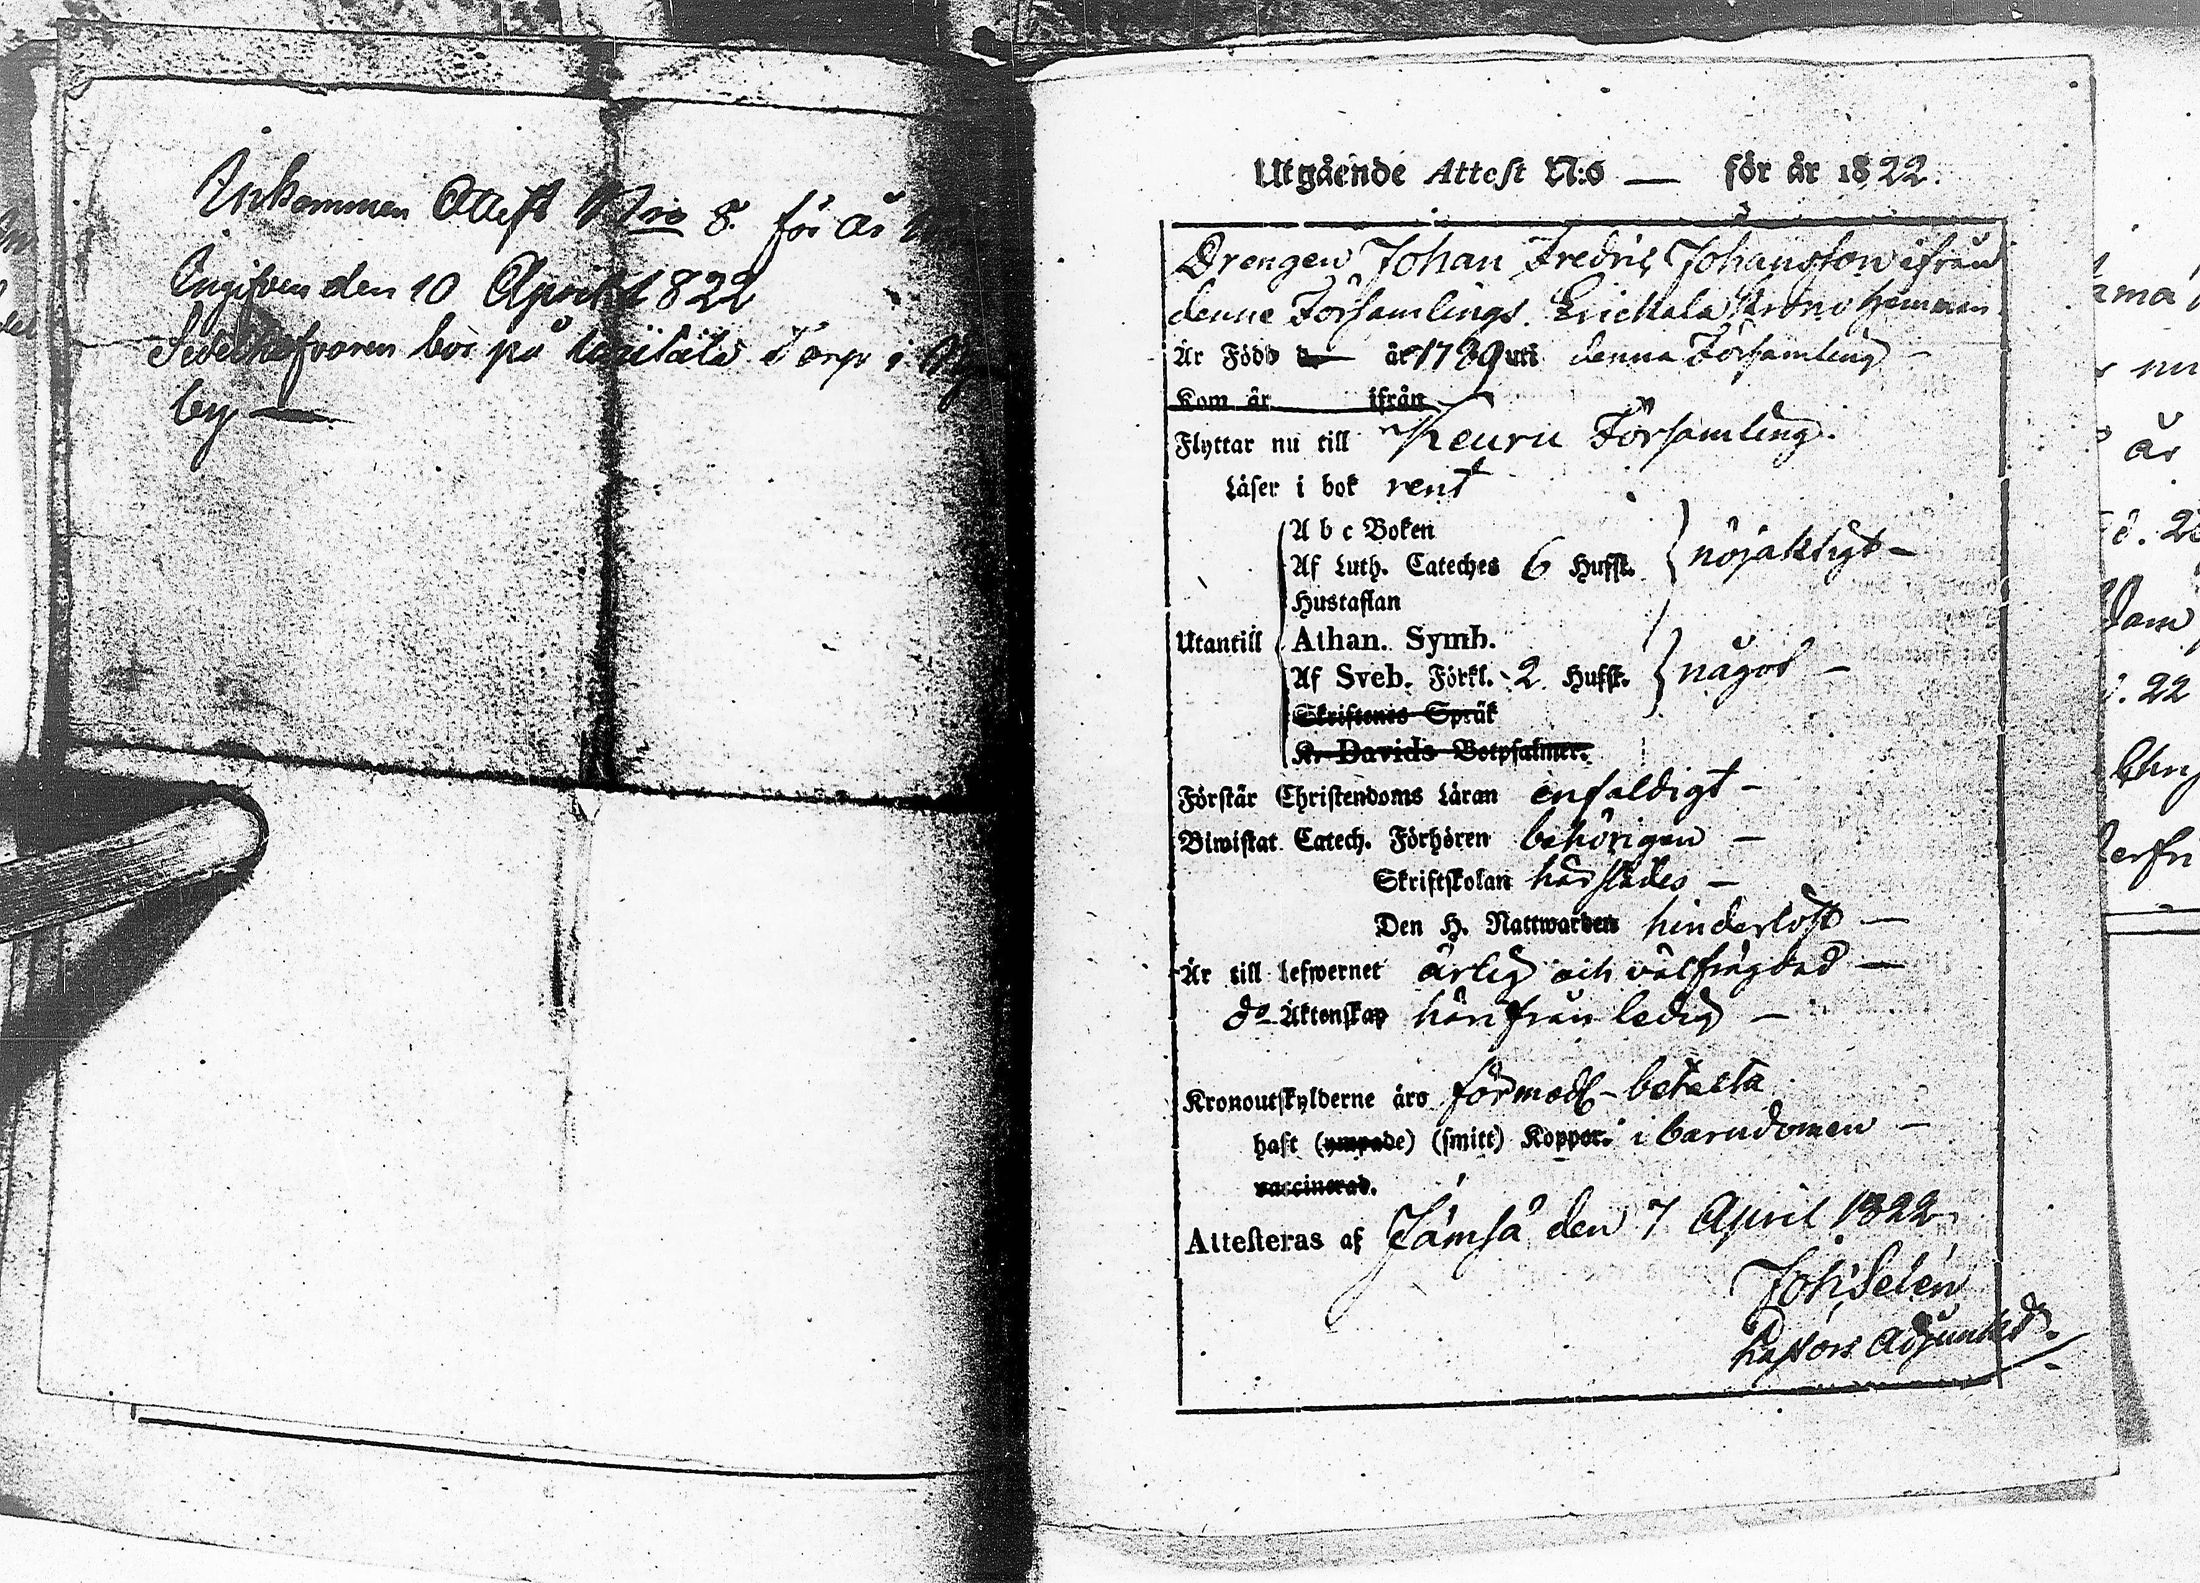 Inkommen Attest Nro 8. för år
Ingifven den 10 April 1822
Sedelhafvaren bor på Torp i
by —
Utgående Attest N:o — för år 1822.
Drengen Johan Fredric Johansson ifrån
denne Församlings Erickala Krono Hemman
Är Född d — år 1789 uti denna Församling —
Kom år ifrån
Flyttar nu till Keuru Församling.
Läser i bok rent
A b c Boken
Af Luth. Cateches 6 Hufst. nöjaktigt —
Hustaflan
Utantill Athan. Symb.
Af Sveb. Förkl. 2 Hufst. något —
Skriftenes Språk
K. Davids Botpsalmer.
Förstår Christendoms Läran enfaldigt —
Biwistat Catech. Förhören behörigen —
Skriftskolan härstädes —
Den H. Nattwarden hinderlöst —
Är till lefwernet ärlig och välfrägdad —
do Äktenskap härifrån ledig —
Kronoutskylderne äro förmodl. betalta
haft (ympade) (smitt) Koppor. i barndomen —
vaccinerad.
Attesteras af Jämsä den 7 April 1822
Joh. Selén
Pastors Adjunkt.